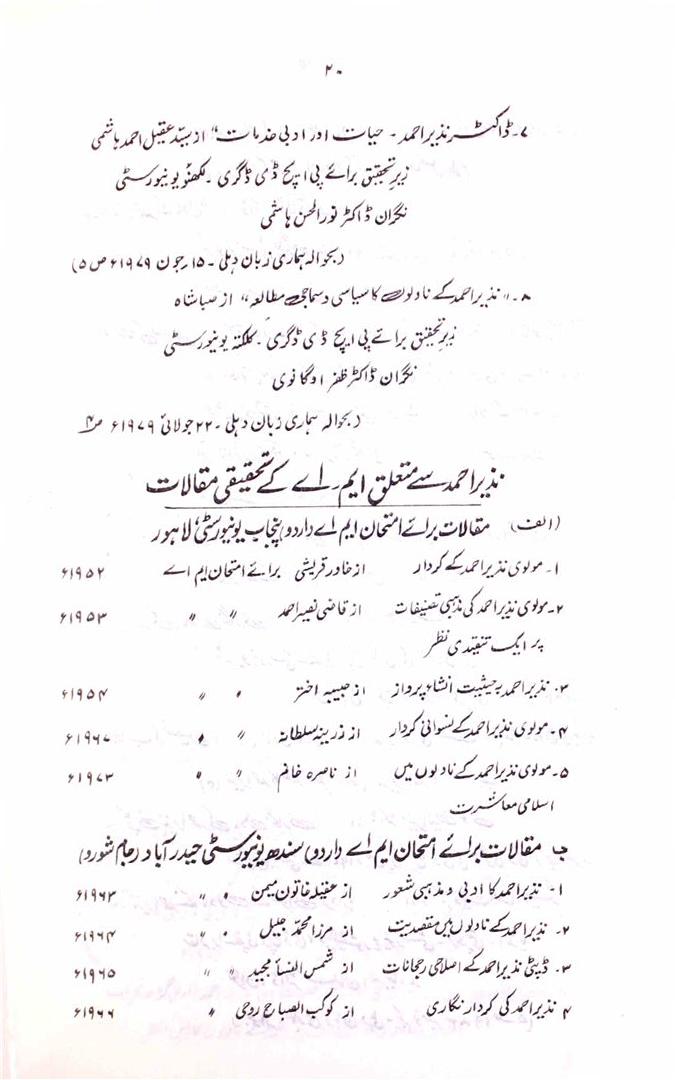 ۲۰
۷۔ ڈاکٹر نذیر احمد ۔ حیات اور ادبی خدمات“ از سیّد عقیل احمد ہاشمی
زیر تحقیق برائے پی ایچ ڈی ڈگری ۔ لکھنؤ یونیورسٹی
نگران ڈاکٹر نور الحسن ہاشمی
(بحوالہ ہماری زبان دہلی ۔ ۱۵ر جون ۱۹۷۹ء ص ۵)
۸۔ ”نذیر احمد کے ناولوں کا سیاسی و سماجی مطالعہ“ از صبا شاہ
زیر تحقیق برائے پی ایچ ڈی ڈگری ۔ کلکتہ یونیورسٹی
نگران ڈاکٹر ظفر اوگانوی
(بحوالہ ہماری زبان دہلی ۔ ۲۲ جولائی ۱۹۷۹ء ص ۴
نذیر احمد سے متعلق ایم ۔ اے کے تحقیقی مقالات
(الف) مقالات برائے امتحان ایم اے (اردو) پنجاب یونیورسٹی، لاہور
۱۔ مولوی نذیر احمد کے کردار از خاور قریشی برائے امتحان ایم اے ۱۹۵۲ء
۲۔ مولوی نذیر احمد کی مذہبی تصنیفات از قاضی نصیر احمد ״ ״ ۱۹۵۳ء
پر ایک تنقیدی نظر
۳۔ نذیر احمد بہ حیثیت انشاء پرداز از حبیبہ اختر ״ ״ ۱۹۵۴ء
۴۔ مولوی نذیر احمد کے نسوانی کردار از زرینہ سلطانہ ״ ״ ۱۹۶۷ء
۵۔ مولوی نذیر احمد کے ناولوں میں از ناصرہ خانم ״ ״ ۱۹۷۳ء
اسلامی معاشرت
ب مقالات برائے امتحان ایم اے (اردو) سندھ یونیورسٹی حیدر آباد (جام شورو)
۱۔ نذیر احمد کا ادبی و مذہبی شعور از عقیلہ خاتون میمن ״ ״ ۱۹۶۳ء
۲۔ نذیر احمد کے ناولوں میں مقصدیت از مرزا محمد جمیل ״ ״ ۱۹۶۴ء
۳۔ ڈپٹی نذیر احمد کے اصلاحی رجحانات از شمس النسأ مجید ״ ״ ۱۹۶۵ء
۴ نذیر احمد کی کردار نگاری از کوکب الصباح روحی ״ ۱۹۶۶ء